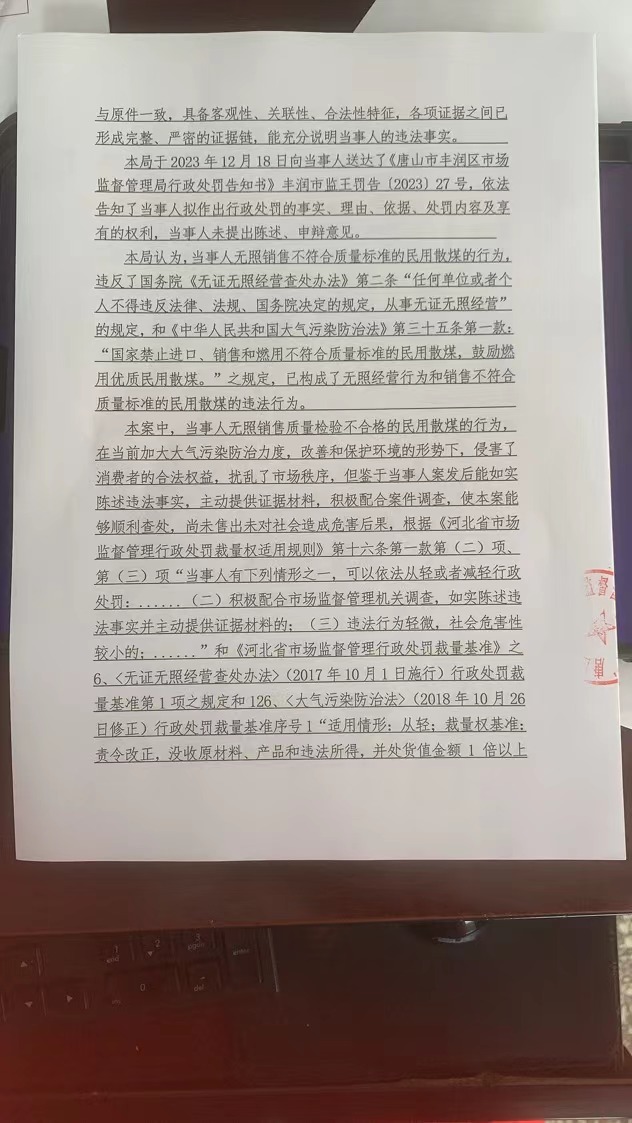 与原件一致，具备客观性、关联性、合法性特征，各项证据之间已
形成完整、严密的证据链，能充分说明当事人的违法事实。
本局于2023年12月18日向当事人送达了《唐山市丰润区市场
监督管理局行政处罚告知书》丰润市监王罚告〔2023〕27号，依法
告知了当事人拟作出行政处罚的事实、理由、依据、处罚内容及享
有的权利，当事人未提出陈述、申辩意见。
本局认为，当事人无照销售不符合质量标准的民用散煤的行为，
违反了国务院《无证无照经营查处办法》第二条“任何单位或者个
人不得违反法律、法规、国务院决定的规定，从事无证无照经营”
的规定，和《中华人民共和国大气污染防治法》第三十五条第一款：
“国家禁止进口、销售和燃用不符合质量标准的民用散煤，鼓励燃
用优质民用散煤。”之规定，已构成了无照经营行为和销售不符合
质量标准的民用散煤的违法行为。
本案中，当事人无照销售质量检验不合格的民用散煤的行为，
在当前加大大气污染防治力度，改善和保护环境的形势下，侵害了
消费者的合法权益，扰乱了市场秩序，但鉴于当事人案发后能如实
陈述违法事实，主动提供证据材料，积极配合案件调查，使本案能
够顺利查处，尚未售出未对社会造成危害后果，根据《河北省市场
监督管理行政处罚裁量权适用规则》第十六条第一款第（二）项、
第（三）项“当事人有下列情形之一，可以依法从轻或者减轻行政
处罚：......（二）积极配合市场监督管理机关调查，如实陈述违
法事实并主动提供证据材料的；（三）违法行为轻微，社会危害性
较小的；......”和《河北省市场监督管理行政处罚裁量基准》之
6、〈无证无照经营查处办法〉（2017年10月1日施行）行政处罚裁
量基准第1项之规定和126、〈大气污染防治法〉（2018年10月26
日修正）行政处罚裁量基准序号1“适用情形：从轻；裁量权基准：
责令改正，没收原材料、产品和违法所得，并处货值金额1倍以上